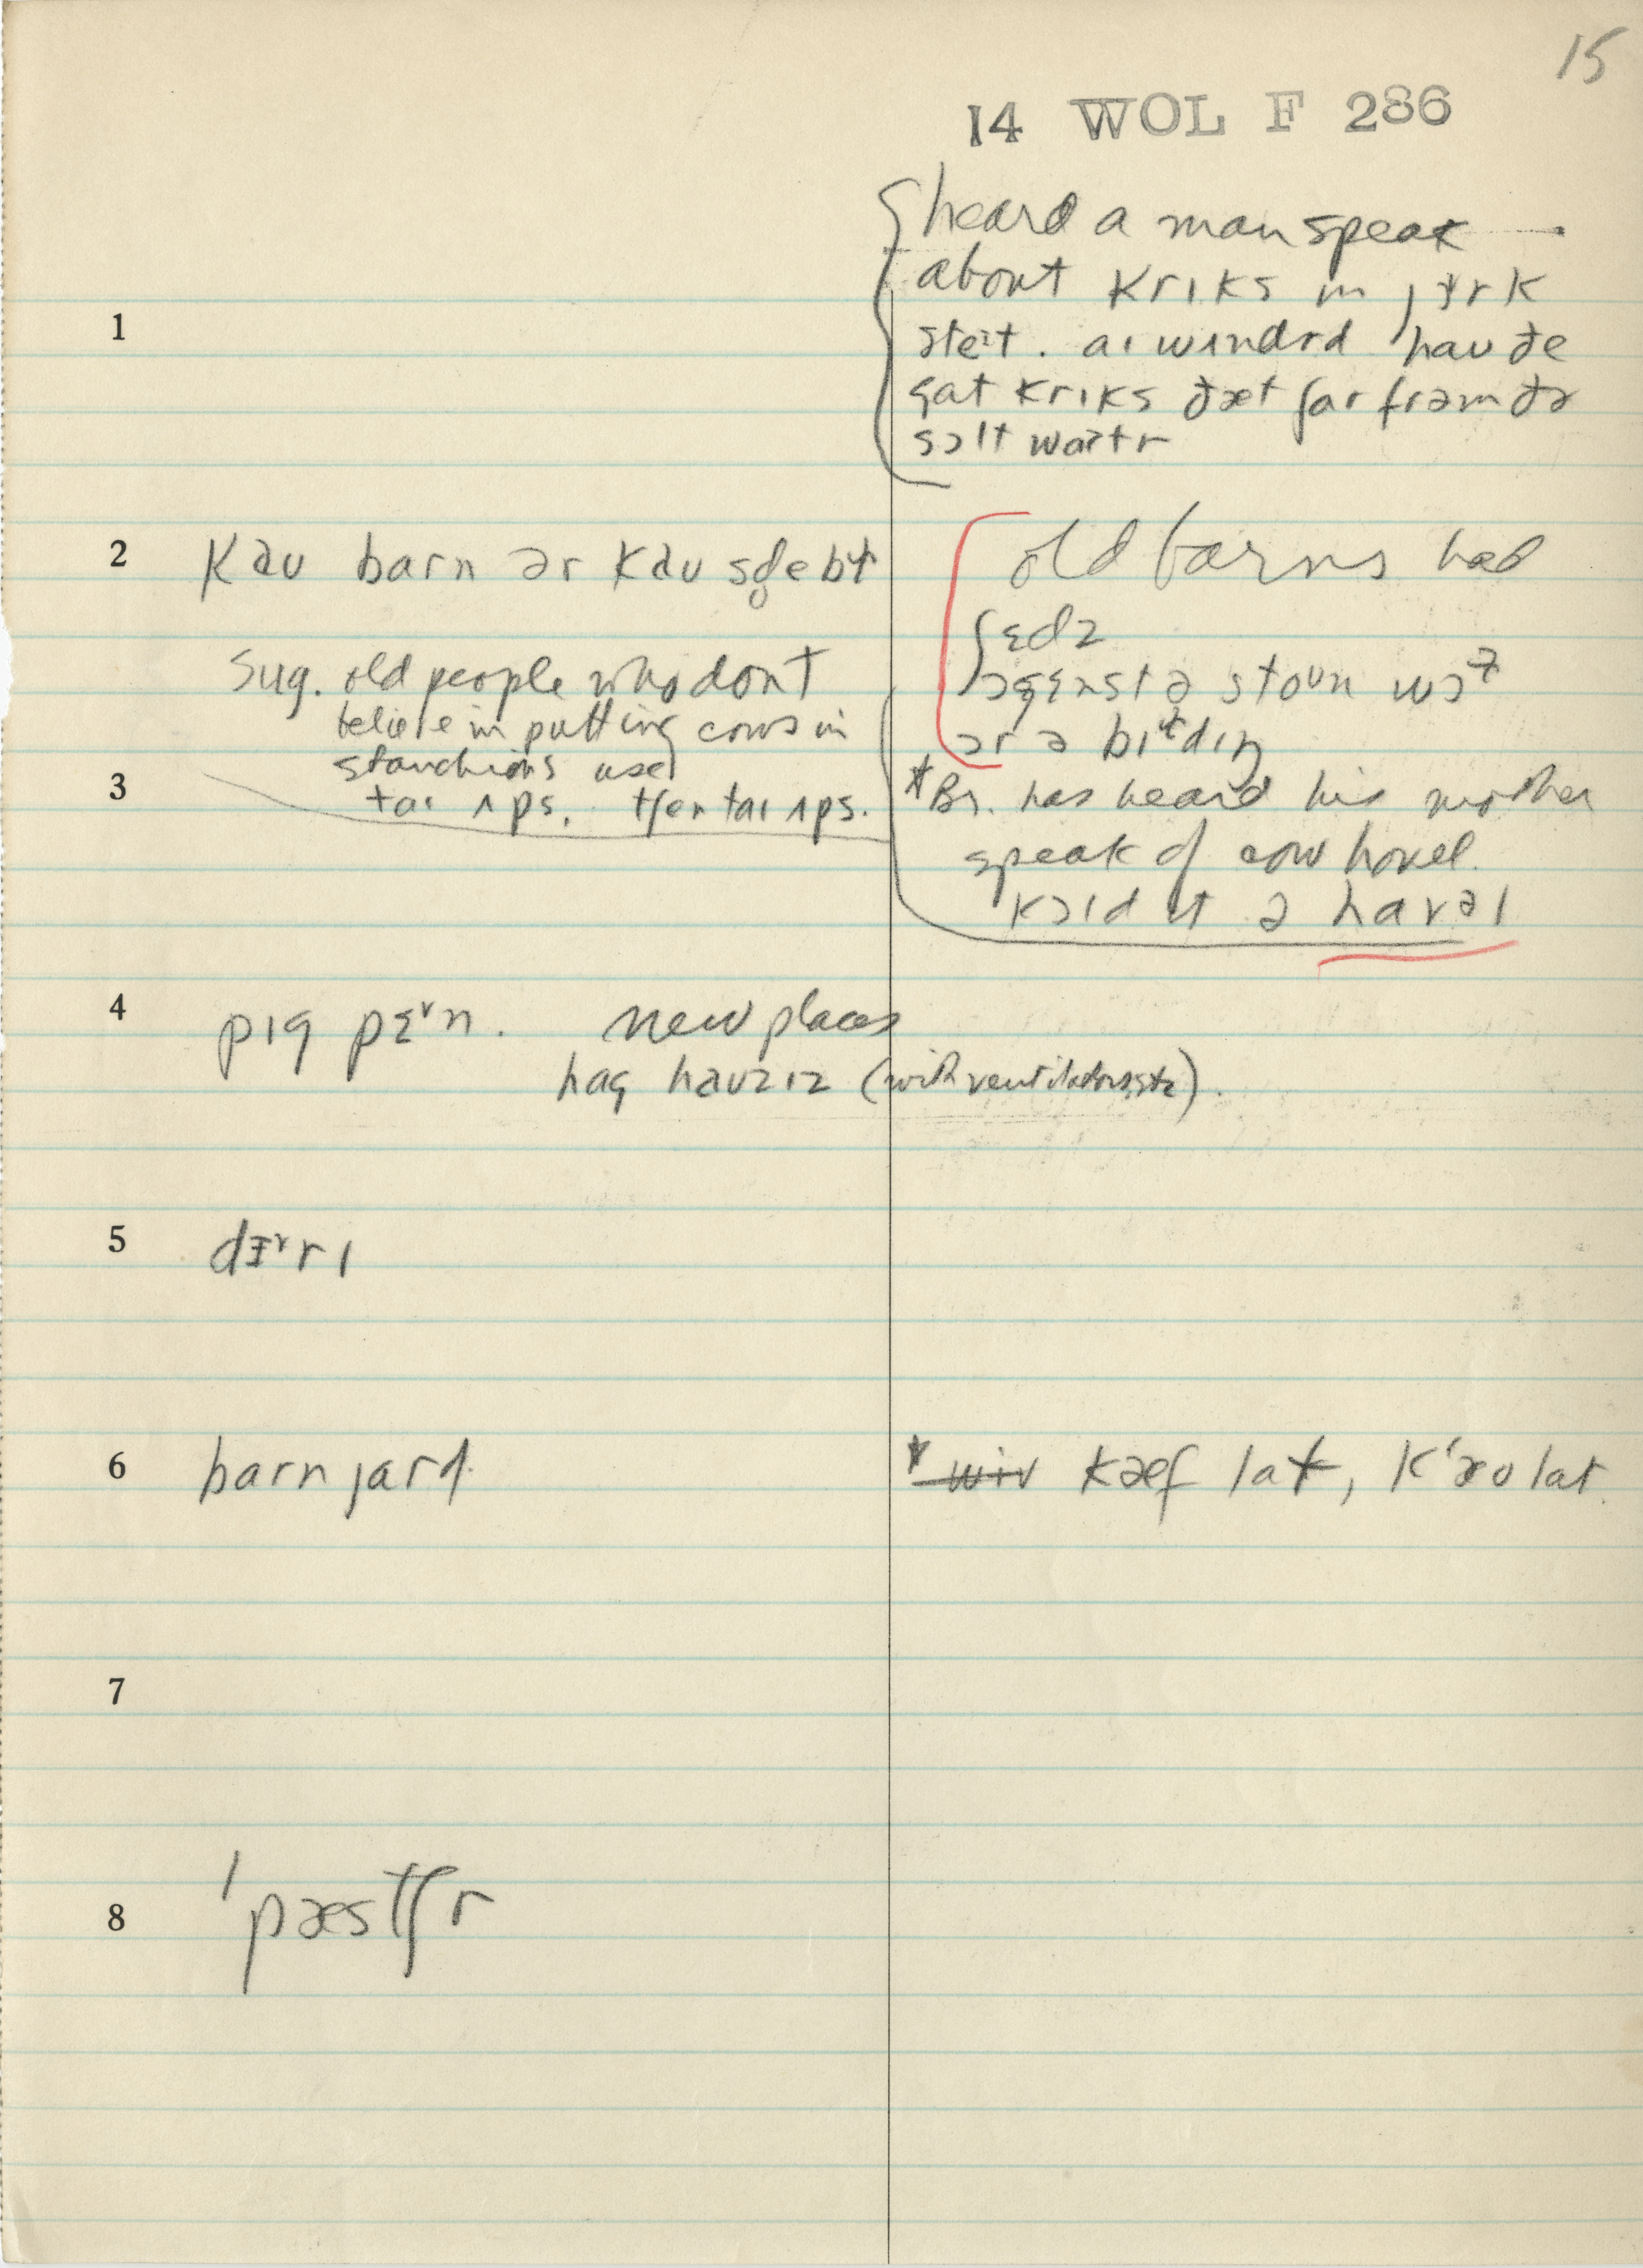 15
14 WOL F 286
heard a man speak
about krıks in jɜrk
steɪt. aɪ wʌndrd hau ðe
gat krıks ðæt far frəm ðə
sɔlt watr
1
2 kau barn ər kau
old barns had
ʃɛdz
əgɛnst ə stoun
ər ə bıłdıŋ
Sug. old people who dont
believe in putting cows in
stanchions use
taɪ ʌps. tʃen taɪ ʌps.
3
* Br. has heard his mother
speak of cow hovel.
kɔld ıt ə havəl
4 pıg pɛ˅n. new places
hag hauzız (with ventilators, etc).
5 dɜ˅rı
6 barn jard
kæf lat, kʻæu lat.
7
8 ˈpæstʃr